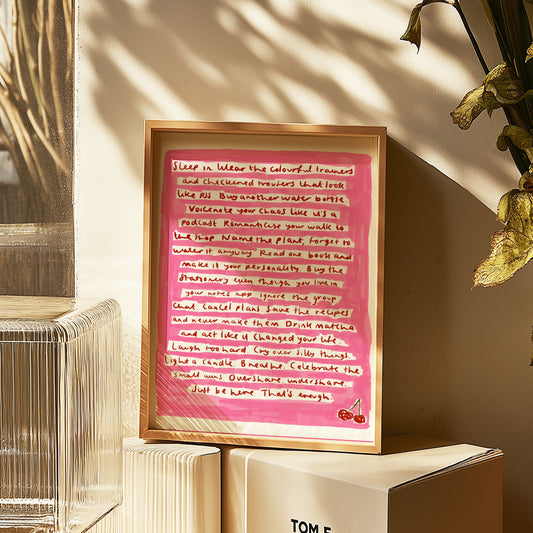 Sleep in Wear the colourful trainers
and checkered trousers that look
like PJs Buy another water bottle
Voicenote your chaos like it's a
podcast Romanticise your walk to
the shop Name the plant, forget to
water it anyway Read one book and
make it your personality. Buy the
stationery even though you live in
your notes app ignore the group
chat. Cancel plans. Save the recipes
and never make them Drink matcha
and act like it changed your life.
Laugh too hard. Cry over silly things.
Light a candle. Breathe. Celebrate the
small wins Overshare. undershare.
Just be here. That's enough.
TOM F